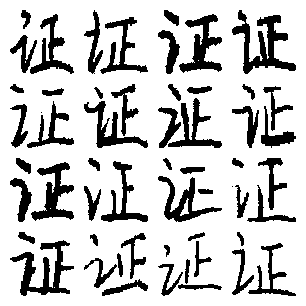 证证证证
证证证证
证证证证
证证证证